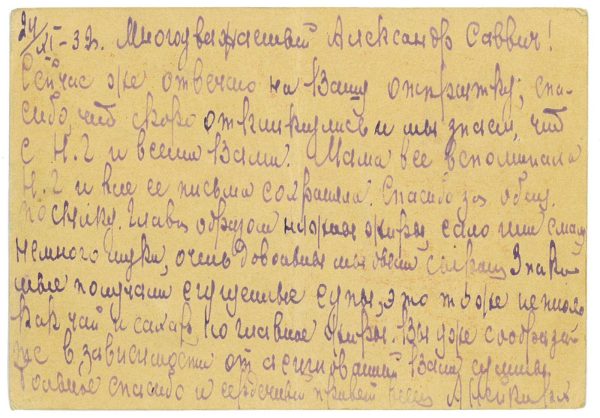 24/XI-32. Многоуважаемый Александр Саввич!
Сейчас же отвечаю на Вашу открытку; спа-
сибо, что скоро откликнулись и мы знаем, что
с Н.Г и всеми Вами. Мама все вспоминала
Н.Г и все ее письма сохраняла. Спасибо за обещ.
посылку. Главн образом нужны жиры, сало или смал
немного муки, очень довольны мы были Знако-
мые получали сгущенные супы, это тоже неплохо
как чай и сахар, но главное жиры. Вы уже сообразуй-
тесь в зависимости от ассигнований Вами суммы.
Большое спасибо и сердечный привет всем